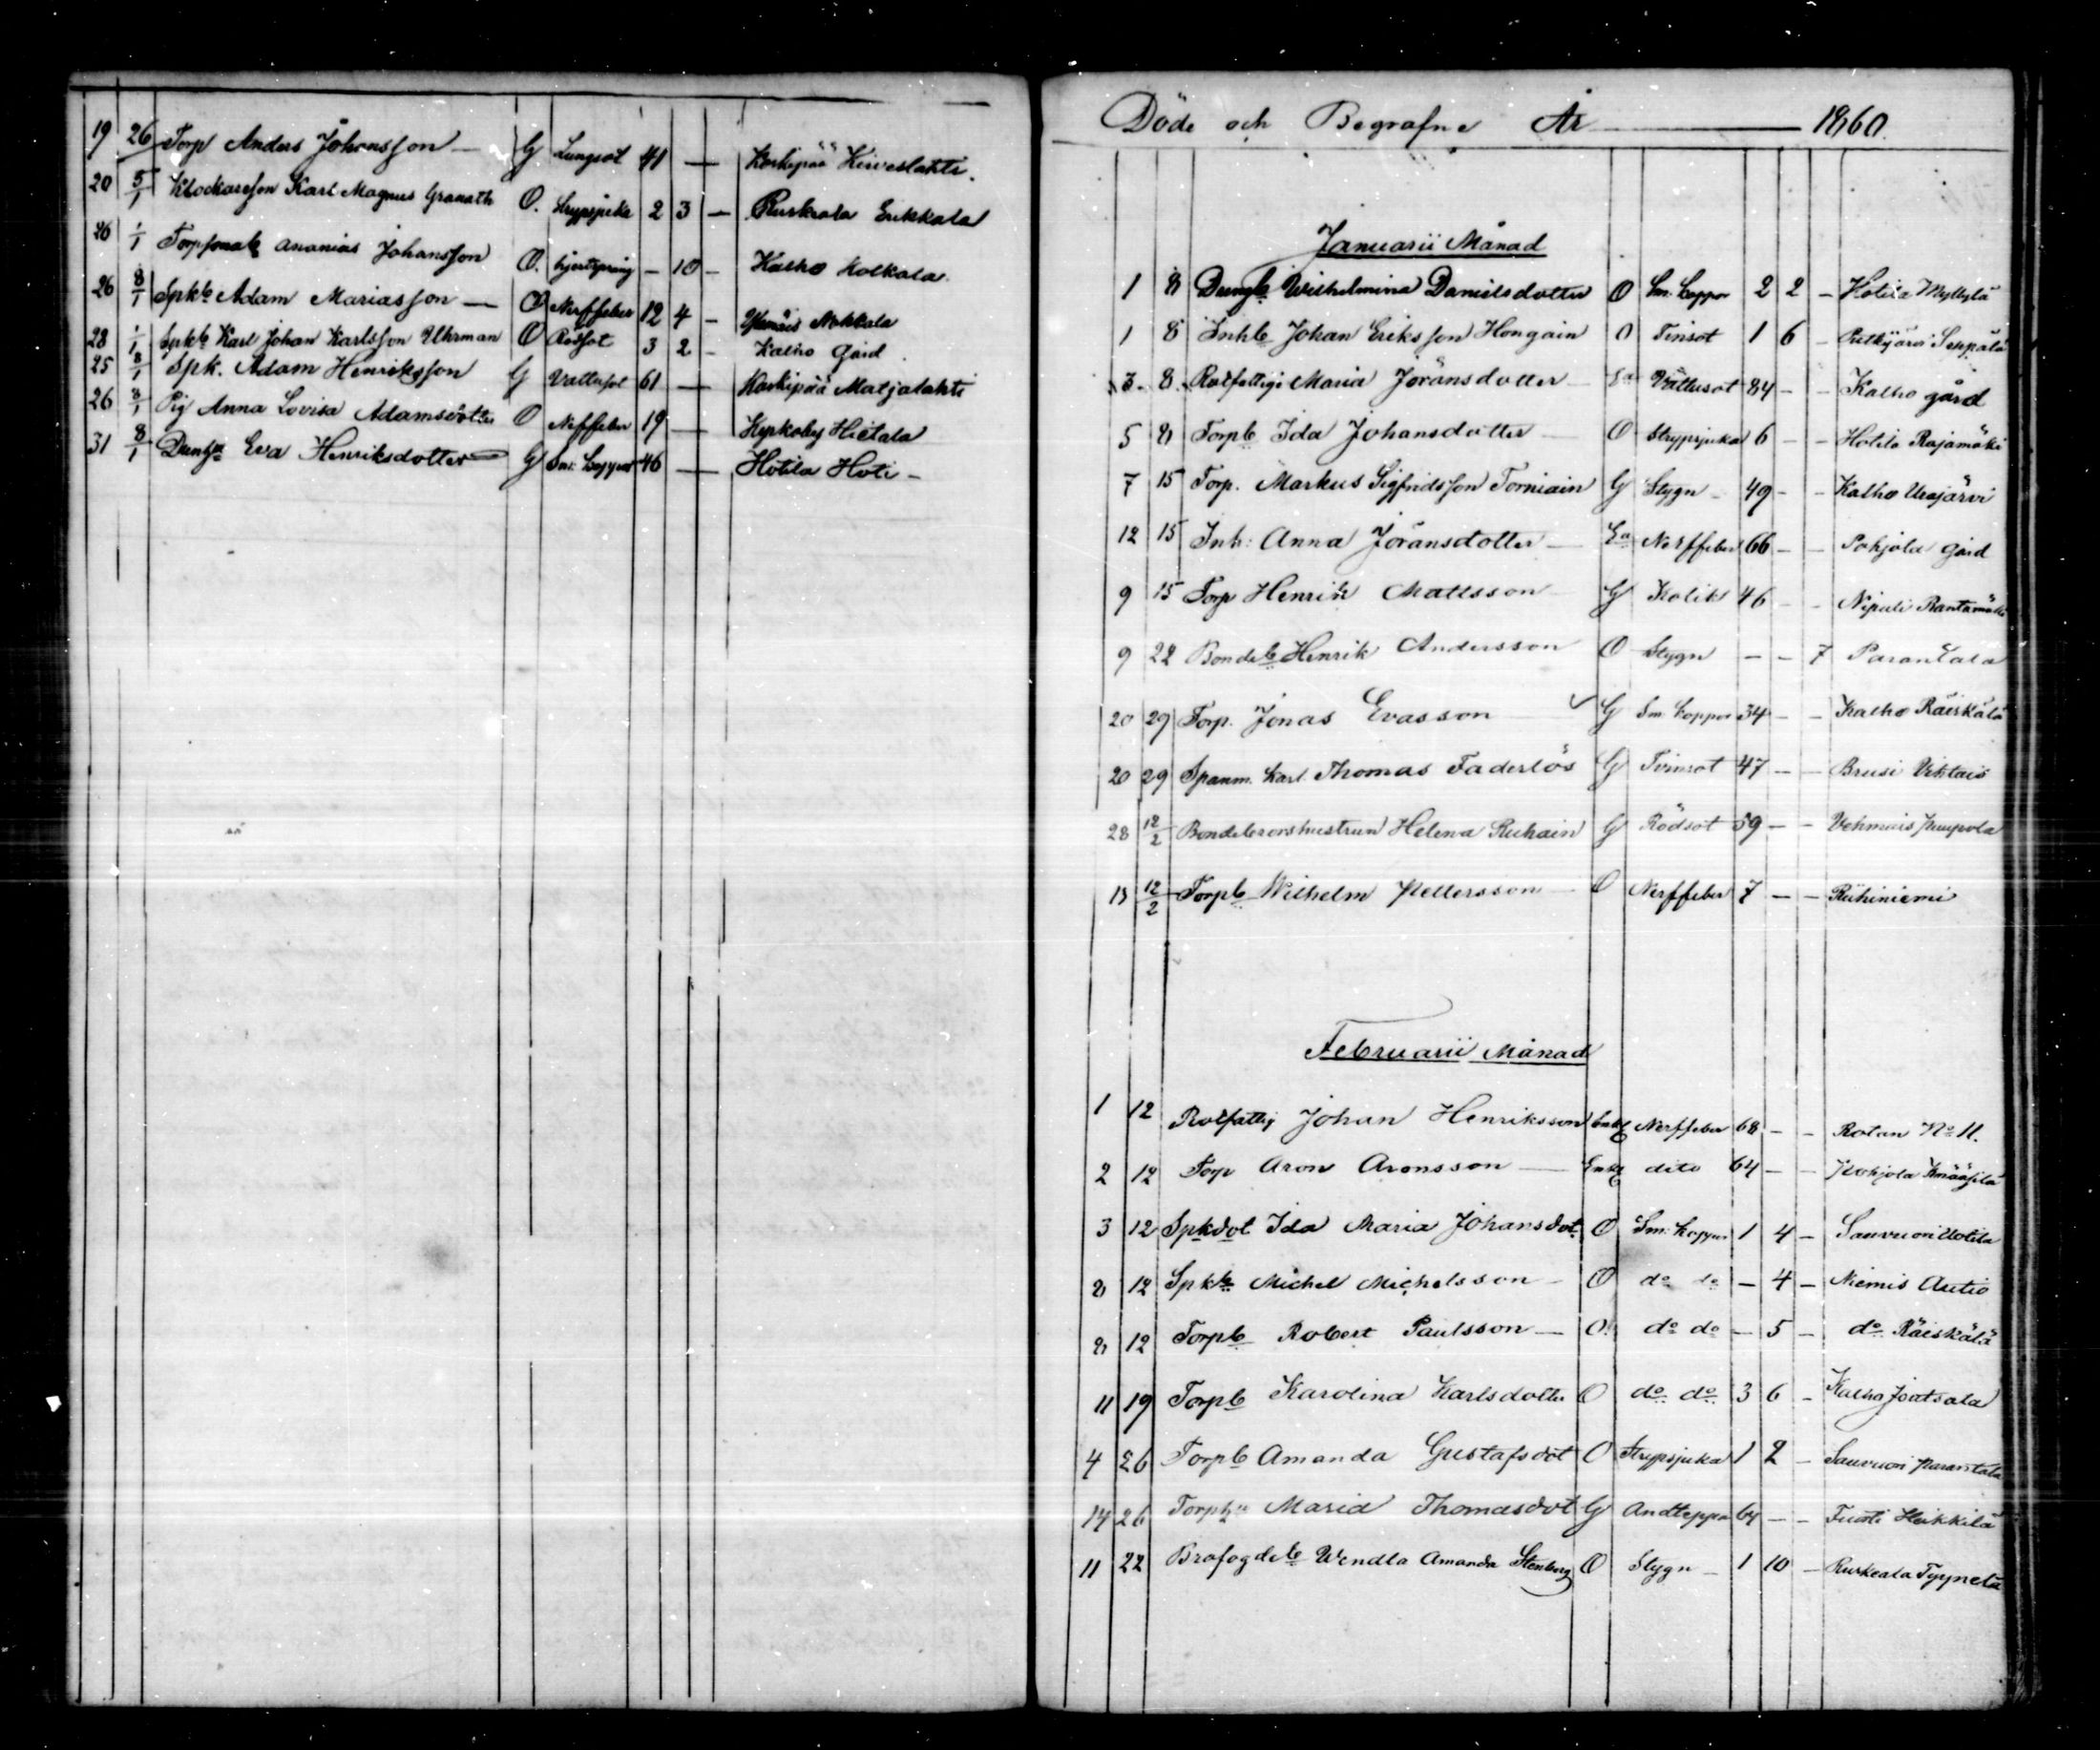 19 26 Torp Anders Johansson — G Lungsot 41 — Koskipää Kirveslahti.
20 5/1 Klockareson Karl Magnus Granath O. Strypsjuka 2 3 — Ruskeala Erikkala
26 1/1 Torpsonab Ananias Johansson O. hjertspräng — 10 — Kalho Kolkala
26 8/1 Spkb Adam Mariasson — O Nerffeber 12 4 — Nokkala
28 1/1 Spkb Karl Johan Karlsson Uhrman O Rödsot 3 2 — Kalho Gård
25 8/1 Spk. Adam Henriksson G Vattusot 61 — Koskipää Matjalahti
26 8/1 Pig Anna Lovisa Adamsdotter O Nerffeber 19 — Kyrkoby Hietala
31 8/1 Eva Henriksdotter G Sm: koppor 46 — Hotila Hoti —
Döde och Begrafne År — 1860.
Januarii Månad
1 8 Drengb Wilhelmina Danielsdotter O Sm. koppor 2 2 — Hotila Myllylä
1 8 Inhb Johan Eriksson Hongain O Tinsot 1 6 — Seppälä
3 8 Rotfattige Maria Jöransdotter Ea Vattusot 84 — — Kalho gård
5 8 Torpb Ida Johansdotter O Strypsjuka 6 — — Hotila Rajamäki
7 15 Torp. Markus Sigfridsson Torniain G Stygn — 49 — — Kalho Urajärvi
12 15 Inh: Anna Jöransdotter — Ea Nerffeber 66 — — Pohjola gård
9 15 Torp Henrik Mattsson G Kolik 46 — — Nipuli Rantamäki
9 22 Bondeb Henrik Andersson O Stygn — — 7 Parantala
20 29 Torp. Jonas Evasson G Sm: koppor 34 — — Kalho Räiskälä
20 29 Spanm. karl Thomas Faderlös G Tvinsot 47 — — Brusi
28 12/2 Bondebrorshustrun Helena Ruhain G Rödsot 59 — — Vehmais Puupola
13 12/2 Torpb Wilhelm Pettersson — O Nerffeber 7 — — Riihiniemi
Februarii Månad
1 12 Rotfattig Johan Henriksson Enkl Nerffeber 68 — — Rotan No 11.
2 12 Torp Aron Aronsson — Enkl dito 64 — — Pohjola
3 12 Spkdot Ida Maria Johansdot O Sm: koppor 1 4 — Sauvuori Uotila
8 12 Spkb Michel Michelsson — O do do — 4 — Niemis Autio
8 12 Torpb Robert Paulsson — O do do — 5 — do Räiskälä
11 19 Torpb Karolina Karlsdotter O do do 3 6 — Kalho Joutsala
4 26 Torpb Amanda Gustafsdot O Strypsjuka 1 2 — Sauvuori Parantala
14 26 Torph Maria Thomasdot G Andteppa 64 — — Heikkilä
11 22 Brofogdeb Wendla Amanda Stenberg O Stygn — 1 10 — Ruskeala Tyynelä